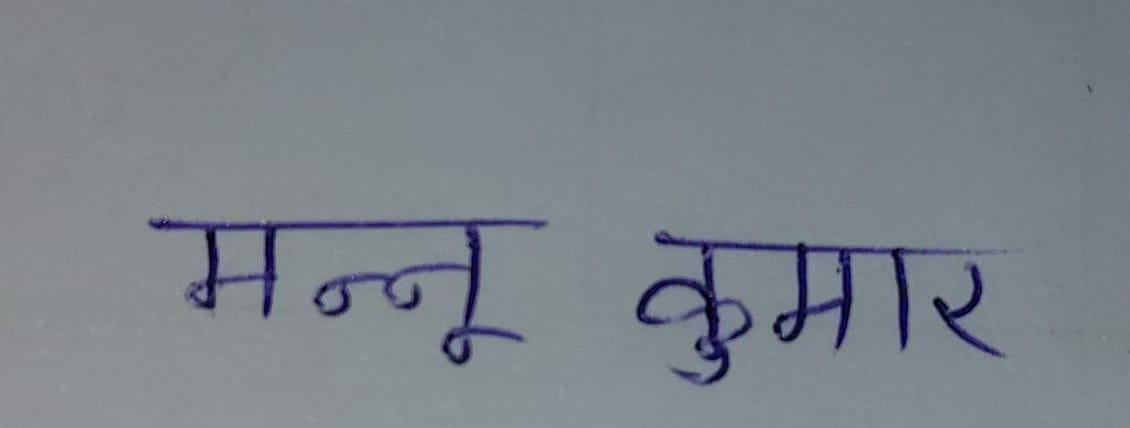 मन्नू कुमार